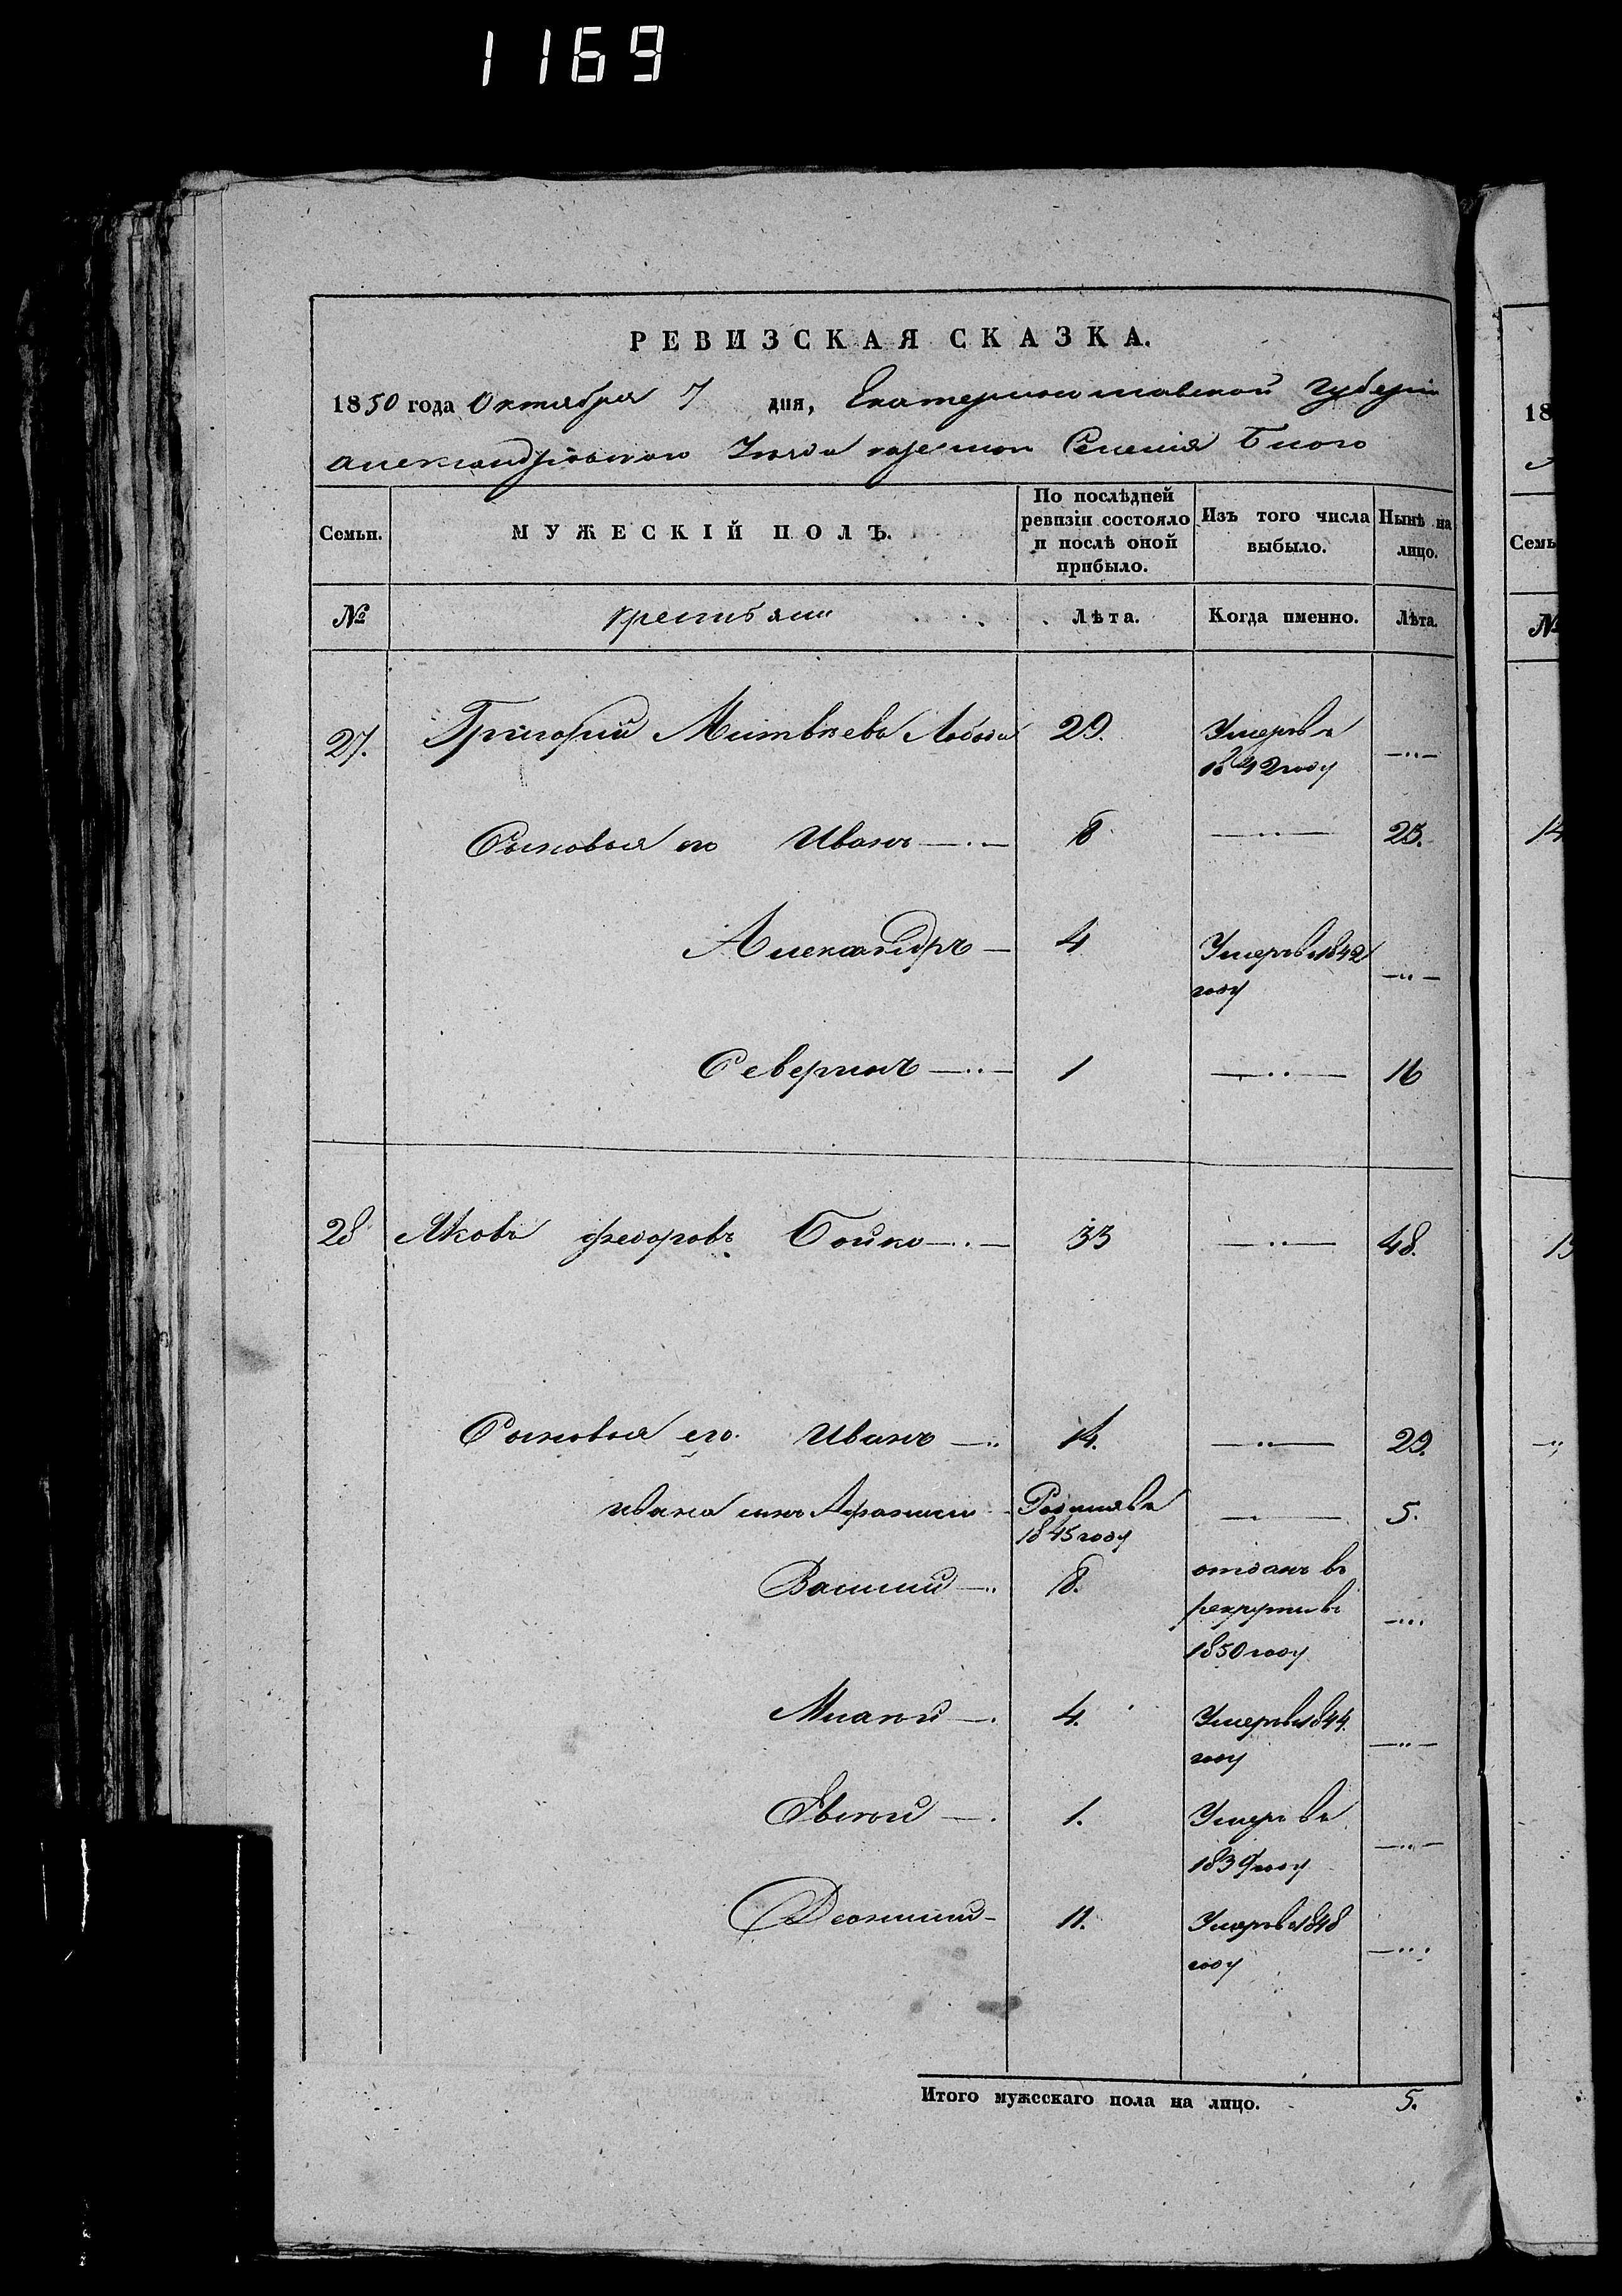 1169
РЕВИЗСКАЯ СКАЗКА.
1850 года Октября 7 дня, Екатеринославской Губерніи
Александровскаго Уѣзда Селенія Бѣлого
Семьи.
МУЖЕСКІЙ ПОЛЪ.
По послѣдней ревизіи состояло и послѣ оной прибыло.
Изъ того числа выбыло.
Нынѣ на лицо.
№ крестьяне Лѣта. Когда именно. Лѣта.
27. Григорій Матвѣевъ Лобода 29. Умеръ в
1842 году
Сыновья его Иванъ 8 23.
Александръ 4 Умеръ в 1842
году
Северинъ 1 16
28 Яковъ Федоровъ Бойко 33 48.
Сыновья его Иванъ 14. 29.
Ивана сынъ Афанасій Родился в 5.
1845 году
Василій 8. отданъ въ
рекруты въ
1850 году
4. Умеръ в 1844.
году
1. Умеръ в
1839 году
Деонисий 11. Умеръ в 1848
году
Итого мужескаго пола на лицо. 5.
18
Семь
№
14
15